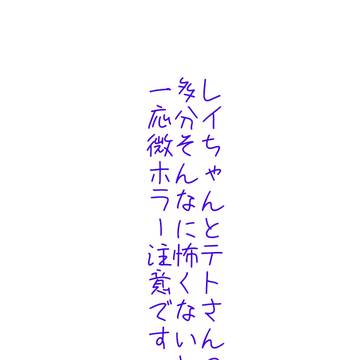 レイちゃんとテトさんの
多分そんなに怖くないし
一応微ホラー注意です